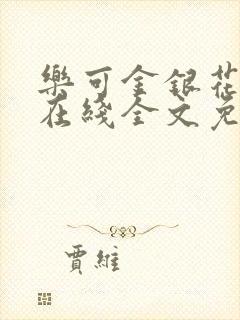 樂可金銀花
在綫全文免
賈維